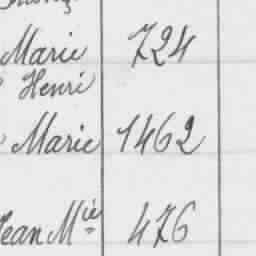 Marie 724
Henri
Marie 1462
Jean Mie 476